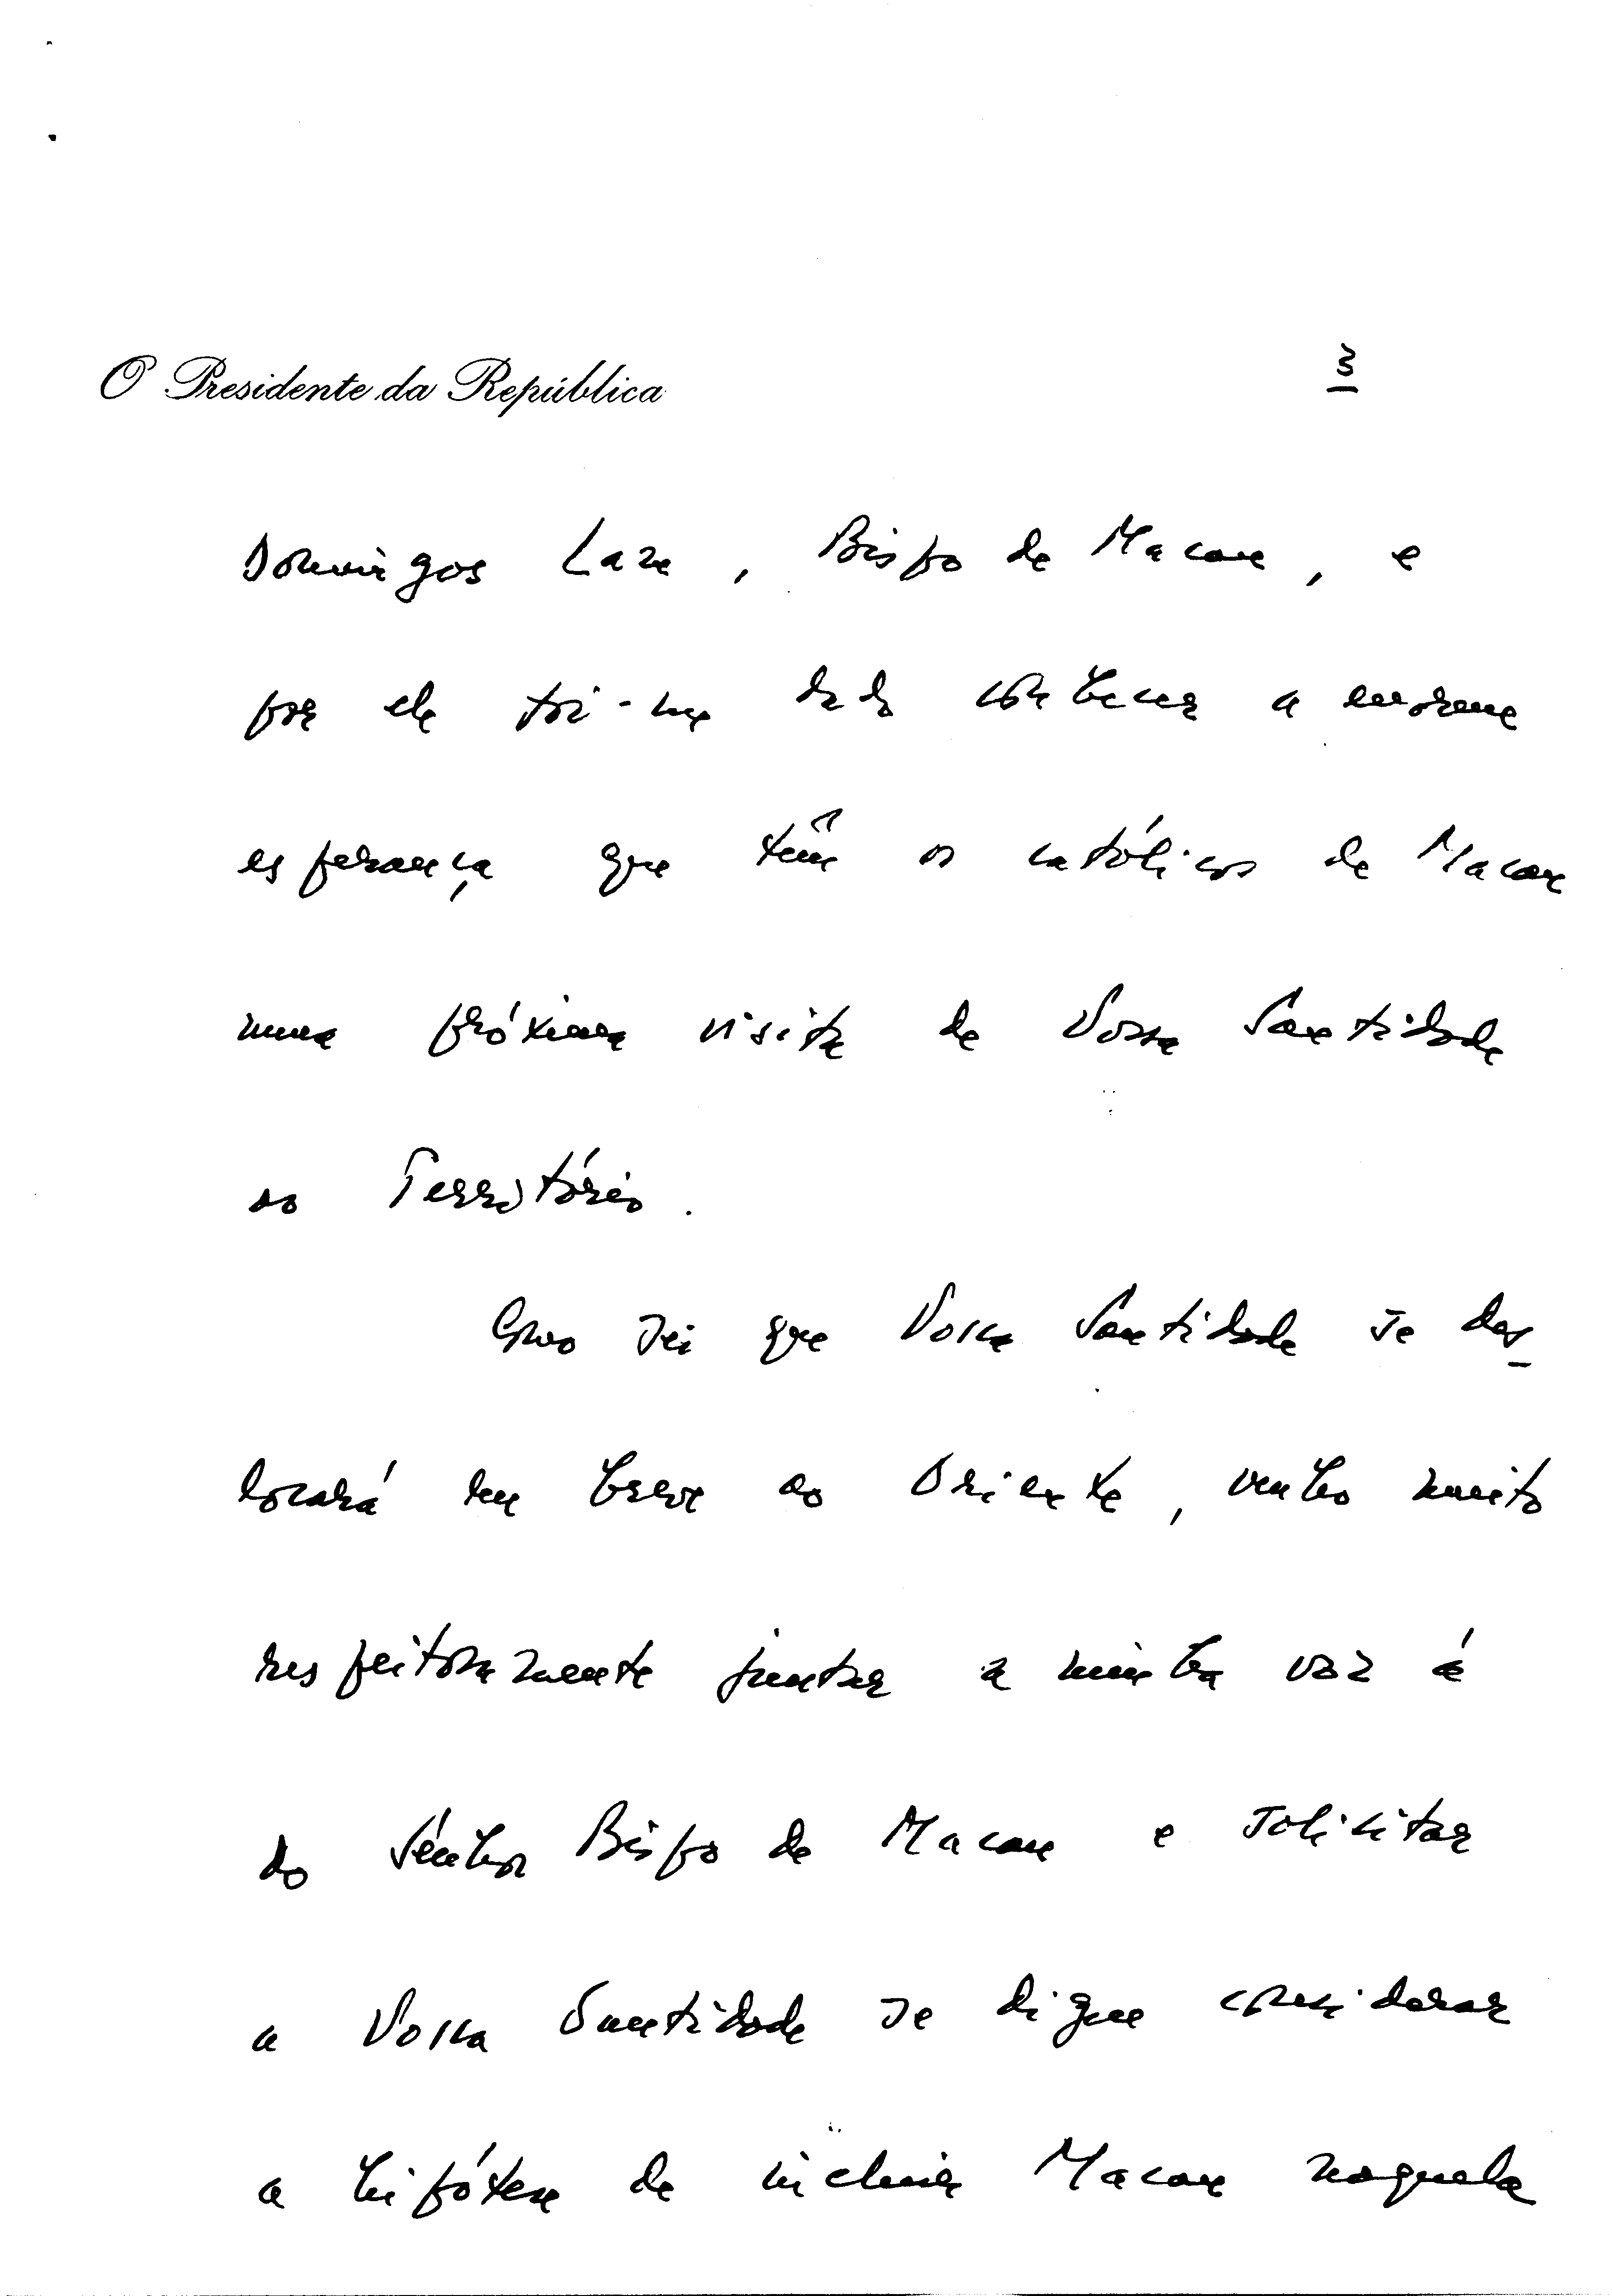 O Presidente da República
3
Domingos Lam, Bispo de Macau, e
por ele foi-me dada conhecer a enorme
esperança que têm os católicos de Macau
numa próxima visita de Vossa Santidade
ao Território.
Como sei que Vossa Santidade se des-
locará em breve ao Oriente, venho muito
respeitosamente juntar a minha voz á
do Senhor Bispo de Macau e solicitar
a Vossa Santidade se digne considerar
a hipótese de incluir Macau naquela